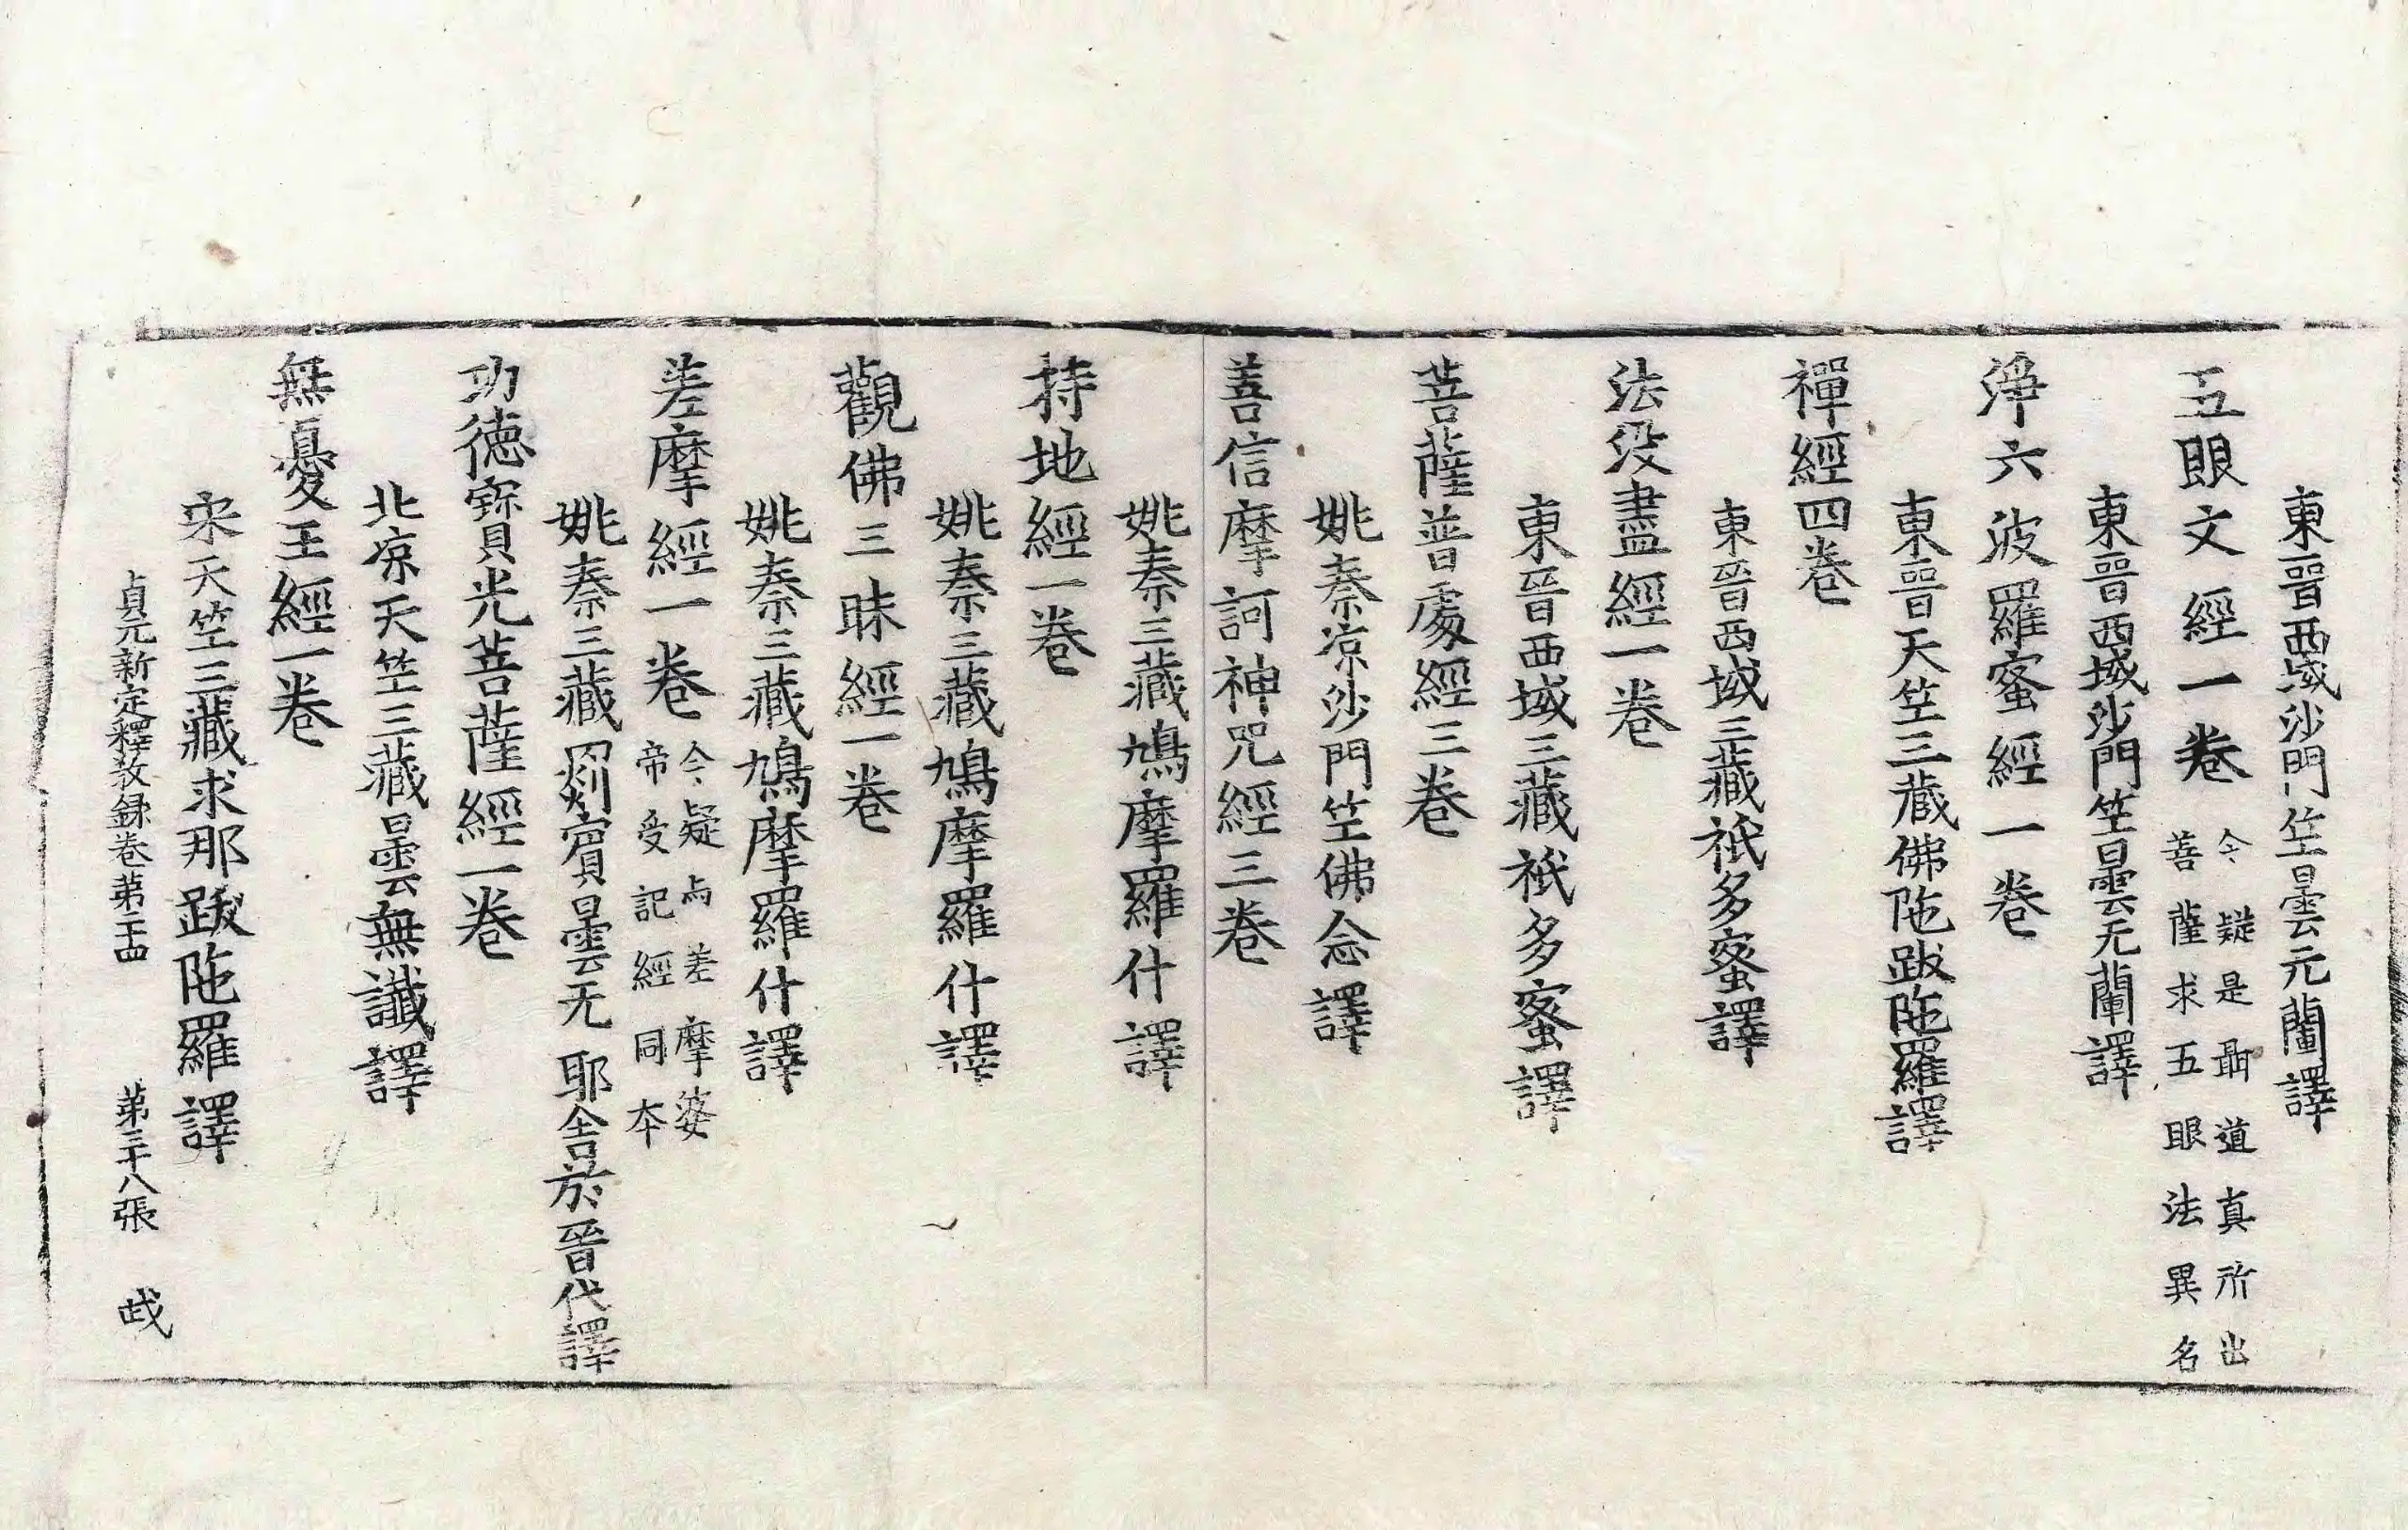 東晉西域沙門竺曇元蘭譯
五眼文經一卷
今疑是聶道真所出
菩薩求五眼法異名
東晉西域沙門竺曇无蘭譯
淨六波羅蜜經一卷
東晉天竺三藏佛陁跋陁羅譯
禪經四卷
東晉西域三藏祇多蜜譯
法没盡經一卷
東晉西域三藏祇多蜜譯
菩薩普處經三卷
姚秦涼沙門竺佛念譯
善信摩訶神咒經三卷
姚秦三藏鳩摩羅什譯
持地經一卷
姚秦三藏鳩摩羅什譯
觀佛三昧經一卷
姚秦三藏鳩摩羅什譯
差摩經一卷
今疑与差摩婆
帝受記經同本
姚秦三藏罽賓曇无耶舍於晉代譯
功德寶光菩薩經一卷
北涼天竺三藏曇無讖譯
無憂王經一卷
宋天竺三藏求那跋陁羅譯
貞元新定釋教錄卷第二十四 第三十八張 㦲